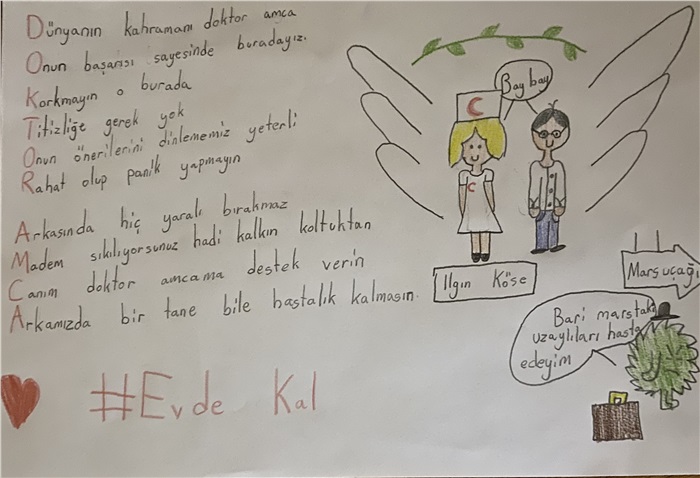 Dünyanın kahramanı doktor amca
Onun başarısı sayesinde buradayız.
Korkmayın o burada
Titizliğe gerek yok
Onun önerilerini dinlememiz yeterli
Rahat olup panik yapmayın
Arkasında hiç yaralı bırakmaz
Madem sıkılıyorsunuz hadi kalkın koltuktan
Canım doktor amcama destek verin
Arkamızda bir tane bile hastalık kalmasın.
#Evde Kal
Bay bay
Ilgın Köse
Marsuçağı
Bari marstaki
uzaylıları hasta
edeyim